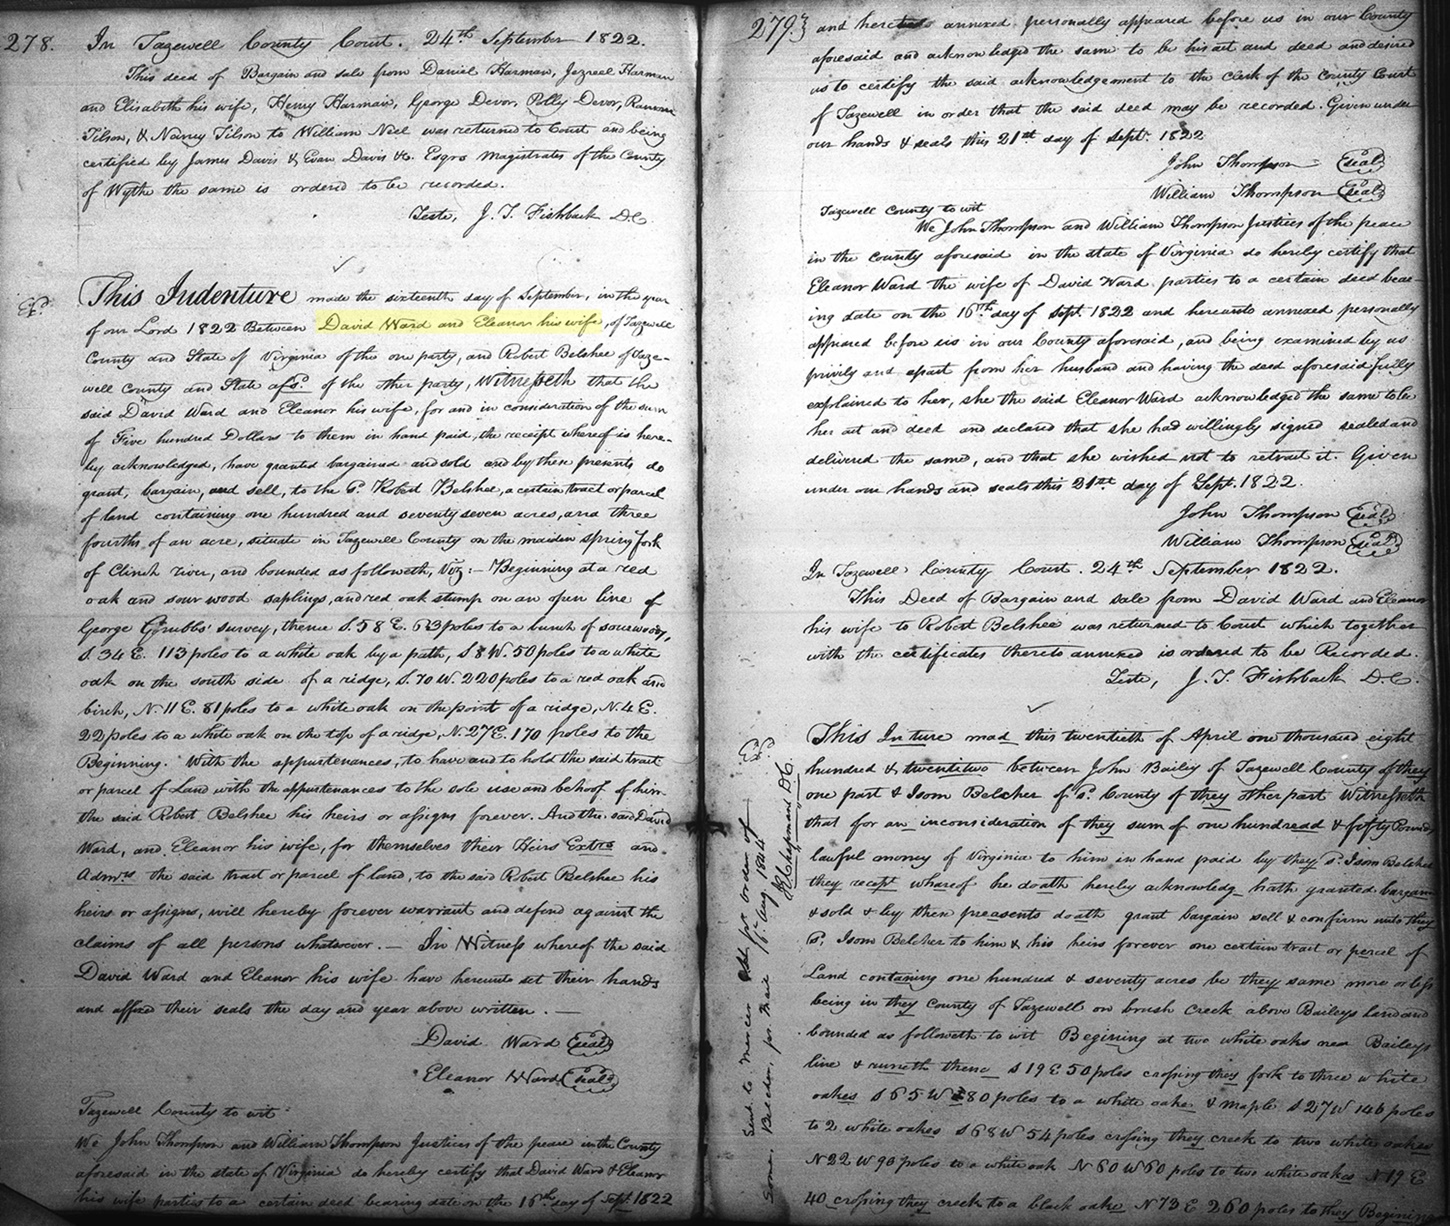 278.
In Tazewell County Court. 24th September 1822.
This deed of Bargain and sale from Daniel Harman, Jezreel Harman
and Elisabeth his wife, Henry Harman, George Devor, Polly Devor, Ransom
Tilson, & Nancy Tilson to William Neel was returned to Court and being
certified by James Davis & Evan Davis &c. Esqrs Magistrates of the County
of Wythe the same is ordered to be recorded.
Teste, J. T. Fishback D.C.
Exd.
This Indenture made the sixteenth day of September, in the year
of our Lord 1822 Between David Ward and Eleanor his wife, of Tazewell
County and State of Virginia of the one party, and Robert Belshee of Taze-
well County and State afsd. of the other party, Witnesseth that the
said David Ward and Eleanor his wife, for and in consideration of the sum
of Five hundred Dollars to them in hand paid, the receipt whereof is here-
by acknowledged, have granted bargained and sold and by these presents do
grant, bargain, and sell, to the sd. Robert Belshee, a certain tract or parcel
of land containing one hundred and seventy seven acres, and three
fourths of an acre, situate in Tazewell County on the maiden spring fork
of Clinch river, and bounded as followeth, Viz:- Beginning at a red
oak and sour wood saplings, and red oak stump on an open line of
George Grubbs' survey, thence S. 58 E. 63 poles to a bunch of sourwoods,
S. 34 E. 113 poles to a white oak by a path, S 8 W. 50 poles to a white
oak on the south side of a ridge, S. 70 W. 220 poles to a red oak and
birch, N. 11 E. 81 poles to a white oak on the point of a ridge, N. 4 E.
22 poles to a white oak on the top of a ridge, N. 27 E. 170 poles to the
Beginning. With the appurtenances, to have and to hold the said tract
or parcel of Land with the appurtenances to the sole use and behoof of him
the said Robert Belshee his heirs or assigns forever. And the said David
Ward, and Eleanor his wife, for themselves their Heirs Extrs and
Admrs the said tract or parcel of land, to the said Robert Belshee his
heirs or assigns, will hereby forever warrant and defend against the
claims of all persons whatever. — In Witness whereof the said
David Ward and Eleanor his wife have hereunto set their hands
and affixd their seals the day and year above written. —
David Ward Seal
Eleanor Ward Seal
Tazewell County to wit:
We John Thompson and William Thompson Justices of the peace in the County
aforesaid in the state of Virginia do hereby certify that David Ward & Eleanor
his wife parties to a certain deed bearing date on the 16th day of Sept 1822
279.
and hereunto annexed personally appeared before us in our County
aforesaid and acknowledged the same to be his act and deed and desired
us to certify the said acknowledgement to the clerk of the County Court
of Tazewell in order that the said deed may be recorded. Given under
our hands & seals this 21st day of Sept. 1822
John Thompson Seal
William Thompson Seal
Tazewell County to wit
We John Thompson and William Thompson Justices of the peace
in the County aforesaid in the state of Virginia do hereby certify that
Eleanor Ward the wife of David Ward parties to a certain deed bear-
ing date on the 16th day of Sept 1822 and hereunto annexed personally
appeared before us in our County aforesaid, and being examined by us
privily and apart from her husband and having the deed aforesaid fully
explained to her, she the said Eleanor Ward acknowledged the same to be
her act and deed and declared that she had willingly signed sealed and
delivered the same, and that she wished not to retract it. Given
under our hands and seals this 21st day of Sept. 1822.
John Thompson Seal
William Thompson Seal
In Tazewell County Court. 24th September 1822.
This Deed of Bargain and sale from David Ward and Eleanor
his wife to Robert Belshee was returned to Court which together
with the certificates thereto annexed is ordered to be Recorded.
Teste, J. T. Fishback D.C.
Exd
Sent to Mercer per order of
Isom Belcher, per Mail Aug. 1844
Chapman D.C.
This In ture mad this twentieth of April one thousand eight
hundred & twentitwo between John Bailey of Tazewell County of they
one part & Isom Belcher of sd. County of they other part Witnesseth
that for an inconsideration of they sum of one hundread & fifty Pounds
lawful money of Virginia to him in hand paid by they sd. Isom Belcher
they recept whareof he doath hereby acknowledg hath granted bargain
& sold & by then preasents doath grant bargain sell & confirm unto they
sd. Isom Belcher to him & his heirs forever one certain tract or percel of
Land contaning one hundred & seventy acres be they same more or less
being in they County of Tazewell on brush creek above Baileys land and
bounded as followeth to wit Begining at two white oaks near Baileys
line & runeth thence S 19 E 50 poles crossing they fork to three white
oakes S 65 W 280 poles to a white oake & maple S 27 W 146 poles
to 2 white oakes S 68 W 54 poles crossing they creek to two white oakes
N 22 W 90 poles to a white oak N 60 W 60 poles to two white oakes N 19 E
40 crossing they creek to a black oake N 73 E 260 poles to they Begining